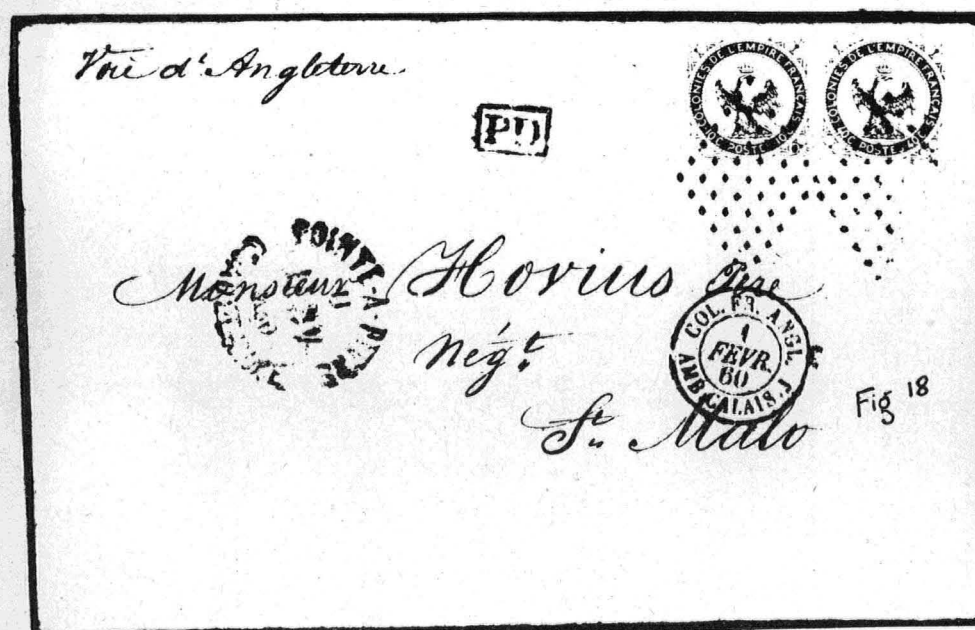 Voie d'Angleterre
COLONIES DE L'EMPIRE FRANÇAIS
10C POSTE 10C
COLONIES DE L'EMPIRE FRANÇAIS
40C POSTE 40C
PD
POINTE-A-PITRE
Monsieur Hovius Père
Négt
COL. FR. ANGL.
1
FEVR.
60
AMB. CALAIS. J
St. Malo
Fig 18